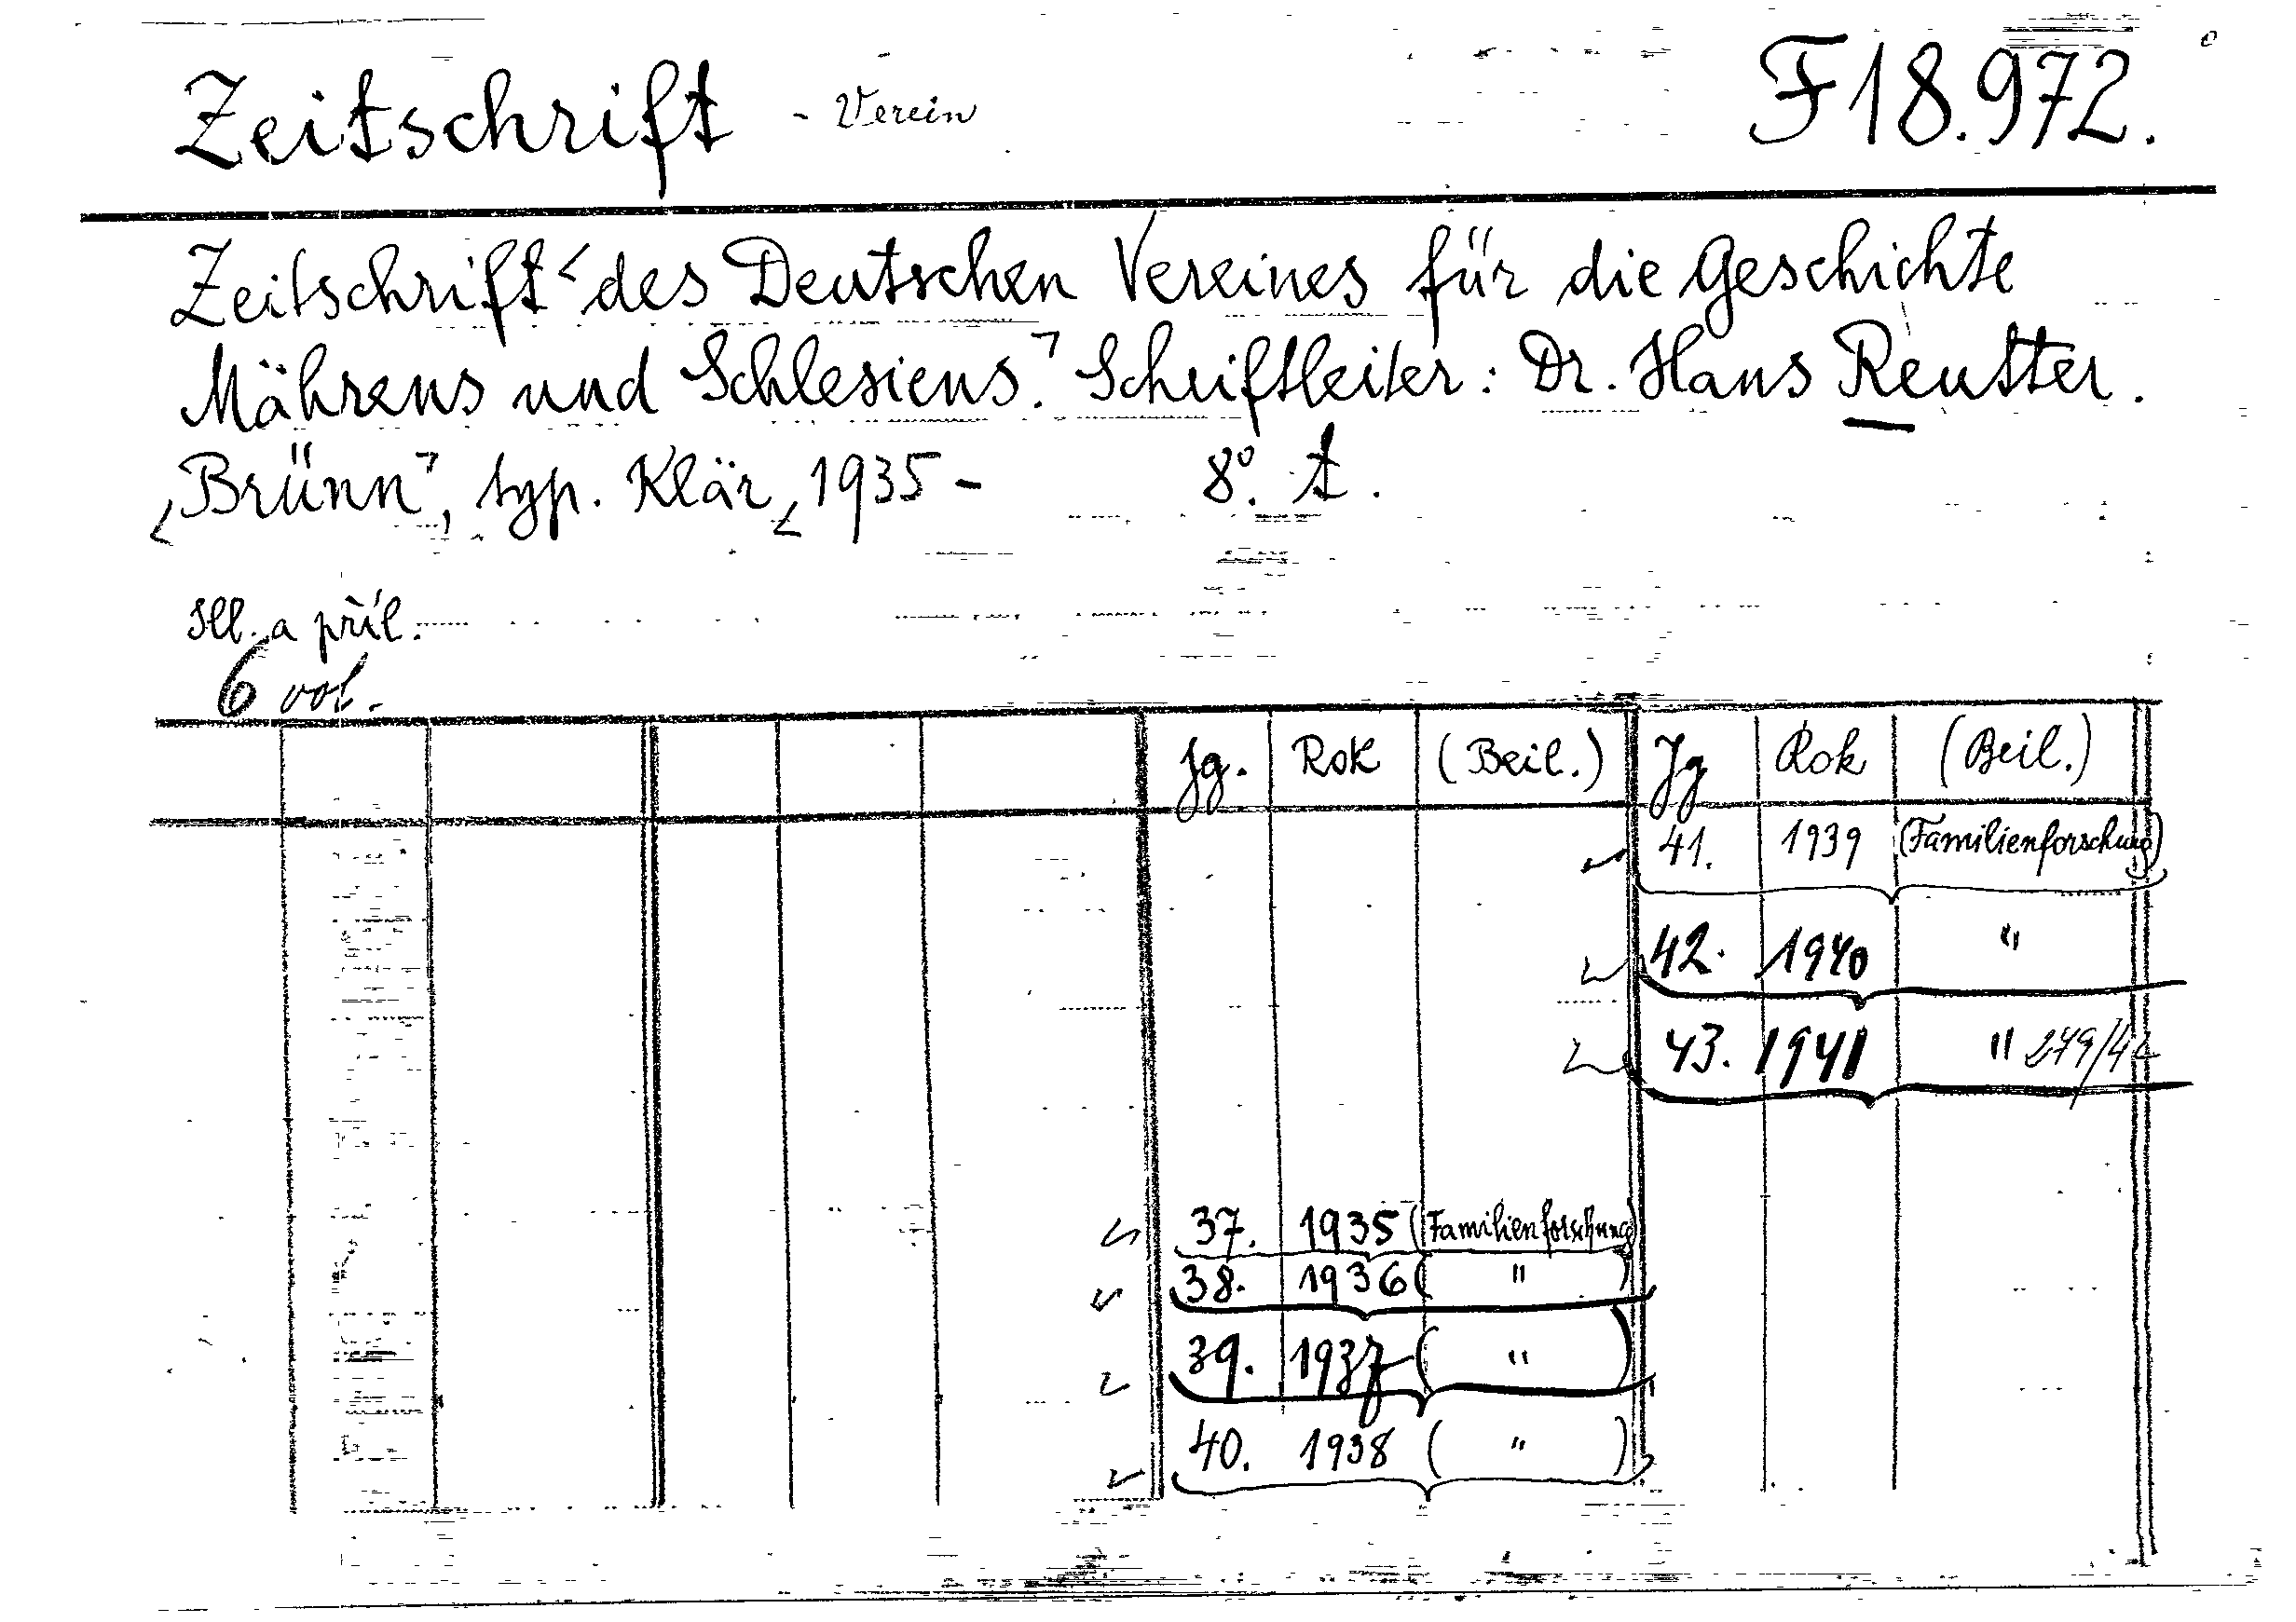 Zeitschrift - Verein F 18.972.
Zeitschrift des Deutschen Vereines für die Geschichte
Mährens und Schlesiens. Schriftleiter: Dr. Hans Reutter.
Brünn, typ. Klär, 1935 - 8°. t.
Ill. a příl.
6 vol.
Jg. Rok (Beil.) Jg Rok (Beil.)
41. 1939 (Familienforschung)
42. 1940 "
43. 1941 " 279/42
37. 1935 (Familienforschung)
38. 1936 ( " )
39. 1937 ( " )
40. 1938 ( " )